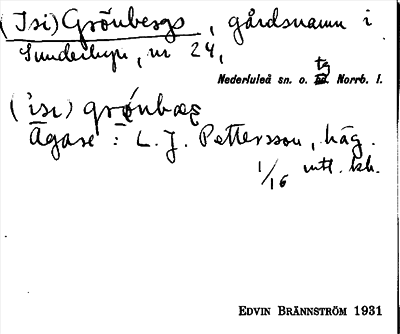 (Isi)Grönbergs, gårdsnamn i
Sunderbyn, nr 24,
Nederluleå sn. o. tg Norrb. l.
(ìsı) grönbæ
Ägare: L. J. Pettersson, häg.
1/16 mtl. kh.
EDVIN BRÄNNSTRÖM 1931